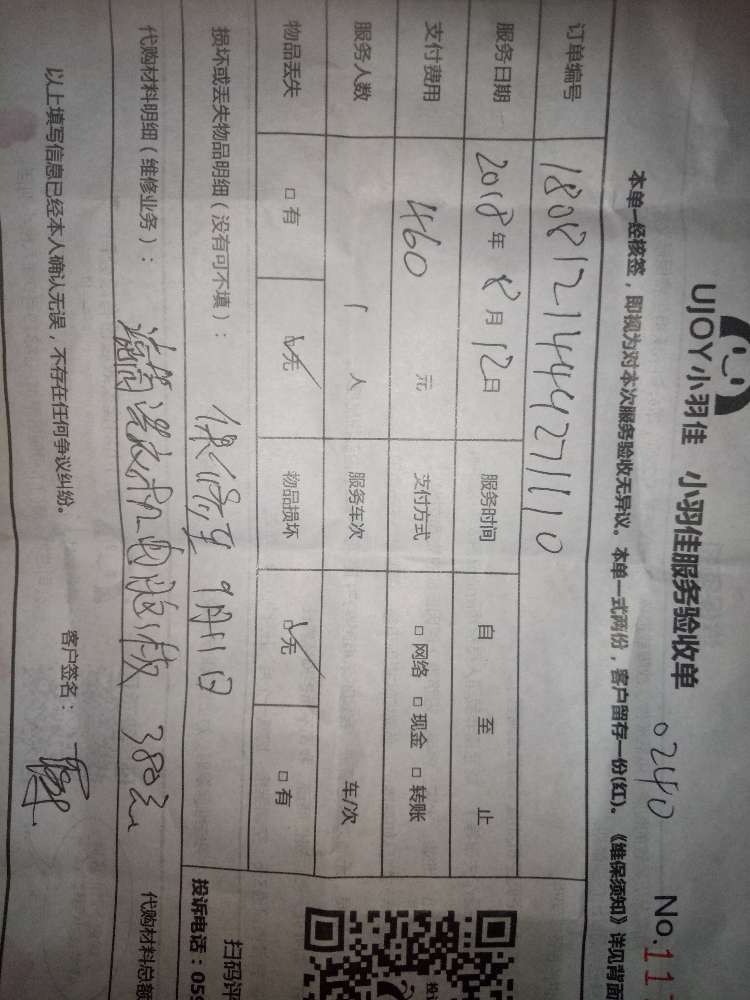 UJOY小羽佳 小羽佳服务验收单
0240 No.11
本单一经核签，即视为对本次服务验收无异议。本单一式两份，客户留存一份(红)。《维保须知》详见背面
订单编号 1808121444271110
服务日期 2018年8月12日 服务时间 自 至 止
支付费用 460 元 支付方式 □ 网络 □ 现金 □ 转账
服务人数 1 人 服务车次 车/次
物品丢失 □ 有 □ 无 物品损坏 □ 无 □ 有
损坏或丢失物品明细（没有可不填）： 保修至 9月11日
扫码评
投诉电话：059
代购材料明细（维修业务）： 电脑板 380元 代购材料总额
以上填写信息已经本人确认无误，不存在任何争议纠纷。 客户签名：